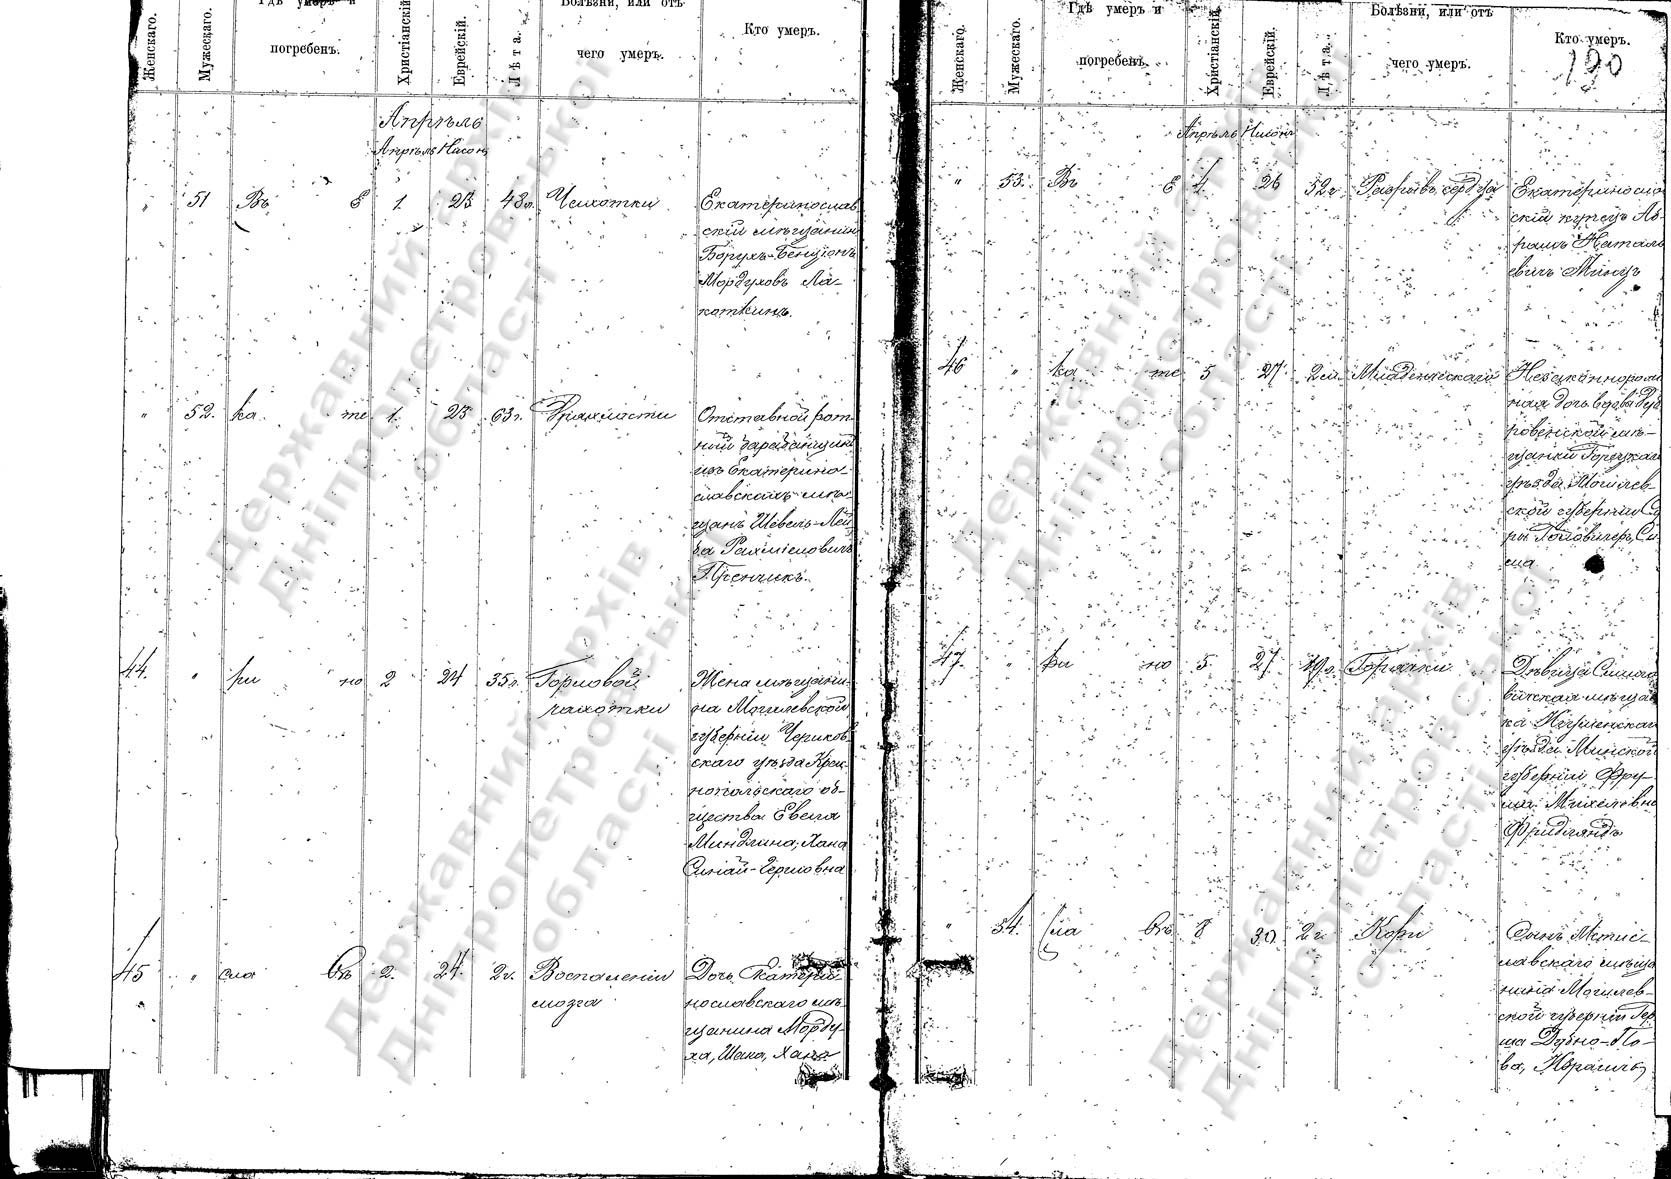 Женскаго.
Мужескаго.
Гдѣ умеръ и
погребенъ.
Христіанскій
Еврейскій.
Лѣта.
Болѣзни, или отъ
чего умеръ.
Кто умеръ.
Апрѣль
Апрѣль Нисонъ
" 51 Въ Е 1 23 48л. Чахотки
Екатеринослав
скій мѣщанинъ
Борухъ-Бенціонъ
Мордуховъ Ла-
каткинъ.
" 52. ка те 1. 23 63г. Дряхлости
Отставной рат
ный барабанщикъ
изъ Екатерино-
славскихъ мѣ-
щанъ Шевель-Лей
ба Рахміеловичъ
Пренчикъ.
44. " ри но 2 24 35л. Горловой
чахотки
Жена мѣщани-
на Могилевской
губерніи Чериков
скаго уѣзда Крас
нопольскаго об-
щества Евеля
Миндлина, Хана
Синай-Гершовна
45 " сла въ 2. 24. 2г. Воспаленія
мозга
Дочь Екатери-
нославскаго мѣ-
щанинаМорду-
ха, Шака, Хана
Женскаго.
Мужескаго.
Гдѣ умеръ и
погребенъ.
Христіанскій
Еврейскій.
Лѣта.
Болѣзни, или отъ
чего умеръ.
Кто умеръ.
190
Апрѣль Нисонъ
" 53. Въ Е 4. 26 52г. Разрывъ сердца
Екатеринослав
скій купецъ Аб
рамъ Наталь
евичъ Минцъ
46 " ка те 5 27 2м. Младенческаго
Незаконнорож
ная дочь вдовы Дуб
ровенской мѣ-
щанки Горецкаго
уѣзда Могилев-
ской губерніи Са
ры Головчеръ, Си
ма
47. " ри но 5 27 19л. Горячки
Дѣвица Смило
вичская мѣщан
ка Игуменскаго
уѣзда Минской
губерніи Фру-
ма Михелевна
Фридляндъ
" 54. сла въ 8 30 2г. Кори
Сынъ Мстис-
лавскаго мѣща
нина Могилев-
ской губерніи Гер
ша Дубно-По-
ва, Израиль
Державний архів
Дніпропетровської
області